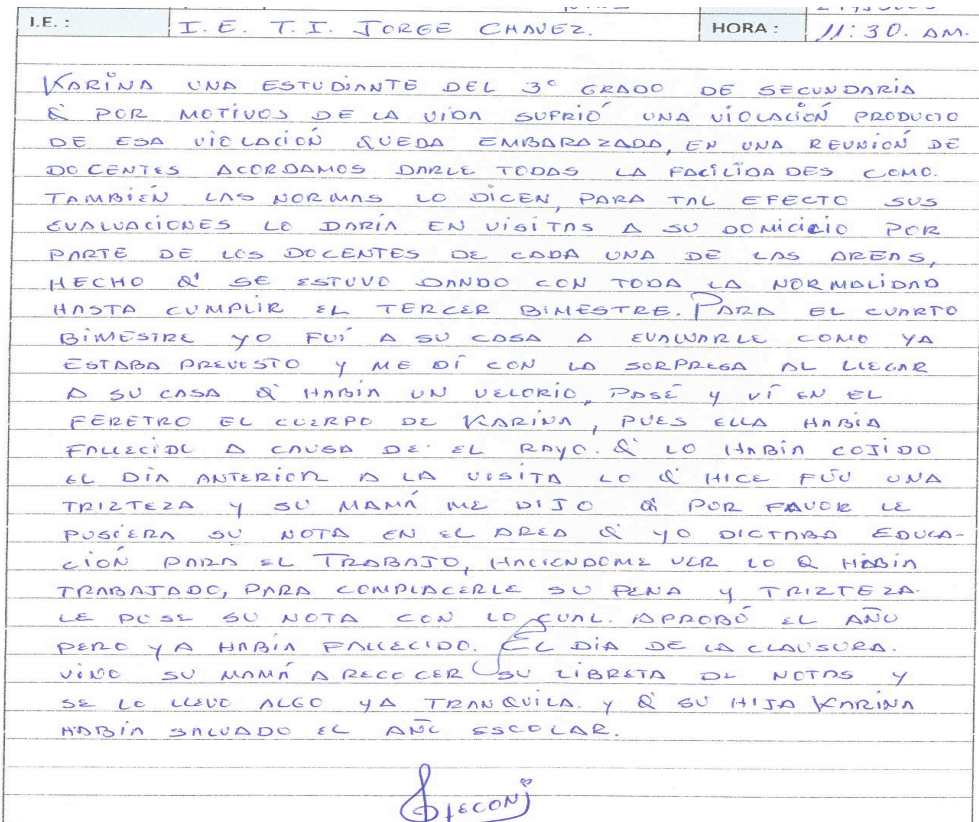 I.E. : I. E. T. I. JORGE CHAVEZ. HORA : 11:30. AM.
KARINA UNA ESTUDIANTE DEL 3° GRADO DE SECUNDARIA
Q POR MOTIVOS DE LA VIDA SUFRIÓ UNA VIOLACIÓN PRODUCTO
DE ESA VIOLACIÓN QUEDA EMBARAZADA, EN UNA REUNIÓN DE
DOCENTES ACORDAMOS DARLE TODAS LA FACILIDADES COMO.
TAMBIÉN LAS NORMAS LO DICEN, PARA TAL EFECTO SUS
EVALUACIONES LO DARÍA EN VISITAS A SU DOMICICIO POR
PARTE DE LOS DOCENTES DE CADA UNA DE LAS AREAS,
HECHO Q' SE ESTUVO DANDO CON TODA LA NORMALIDAD
HASTA CUMPLIR EL TERCER BIMESTRE. PARA EL CUARTO
BIMESTRE YO FUÍ A SU CASA A EVALUARLE COMO YA
ESTABA PREVISTO Y ME DÍ CON LA SORPRESA AL LLEGAR
A SU CASA Q' HABÍA UN VELORIO, PASÉ Y VÍ EN EL
FÉRETRO EL CUERPO DE KARINA, PUES ELLA HABÍA
FALLECIDO A CAUSA DE EL RAYO. Q LO HABÍA COJIDO
EL DÍA ANTERIOR A LA VISITA LO Q' HICE FUÉ UNA
TRIZTEZA Y SU MAMÁ ME DIJO Q' POR FAVOR LE
PUSIERA SU NOTA EN EL AREA Q YO DICTABA EDUCA-
CIÓN PARA EL TRABAJO, HACIENDOME VER LO Q HABÍA
TRABAJADO, PARA COMPLACERLE SU PENA Y TRIZTEZA.
LE PUSE SU NOTA CON LO CUAL. APROBÓ EL AÑO
PERO YA HABÍA FALLECIDO. EL DÍA DE LA CLAUSURA.
VINO SU MAMÁ A RECOCER SU LIBRETA DE NOTAS Y
SE LO LLEVO ALGO YA TRANQUILA. Y Q SU HIJA KARINA
HABÍA SALVADO EL AÑO ESCOLAR.